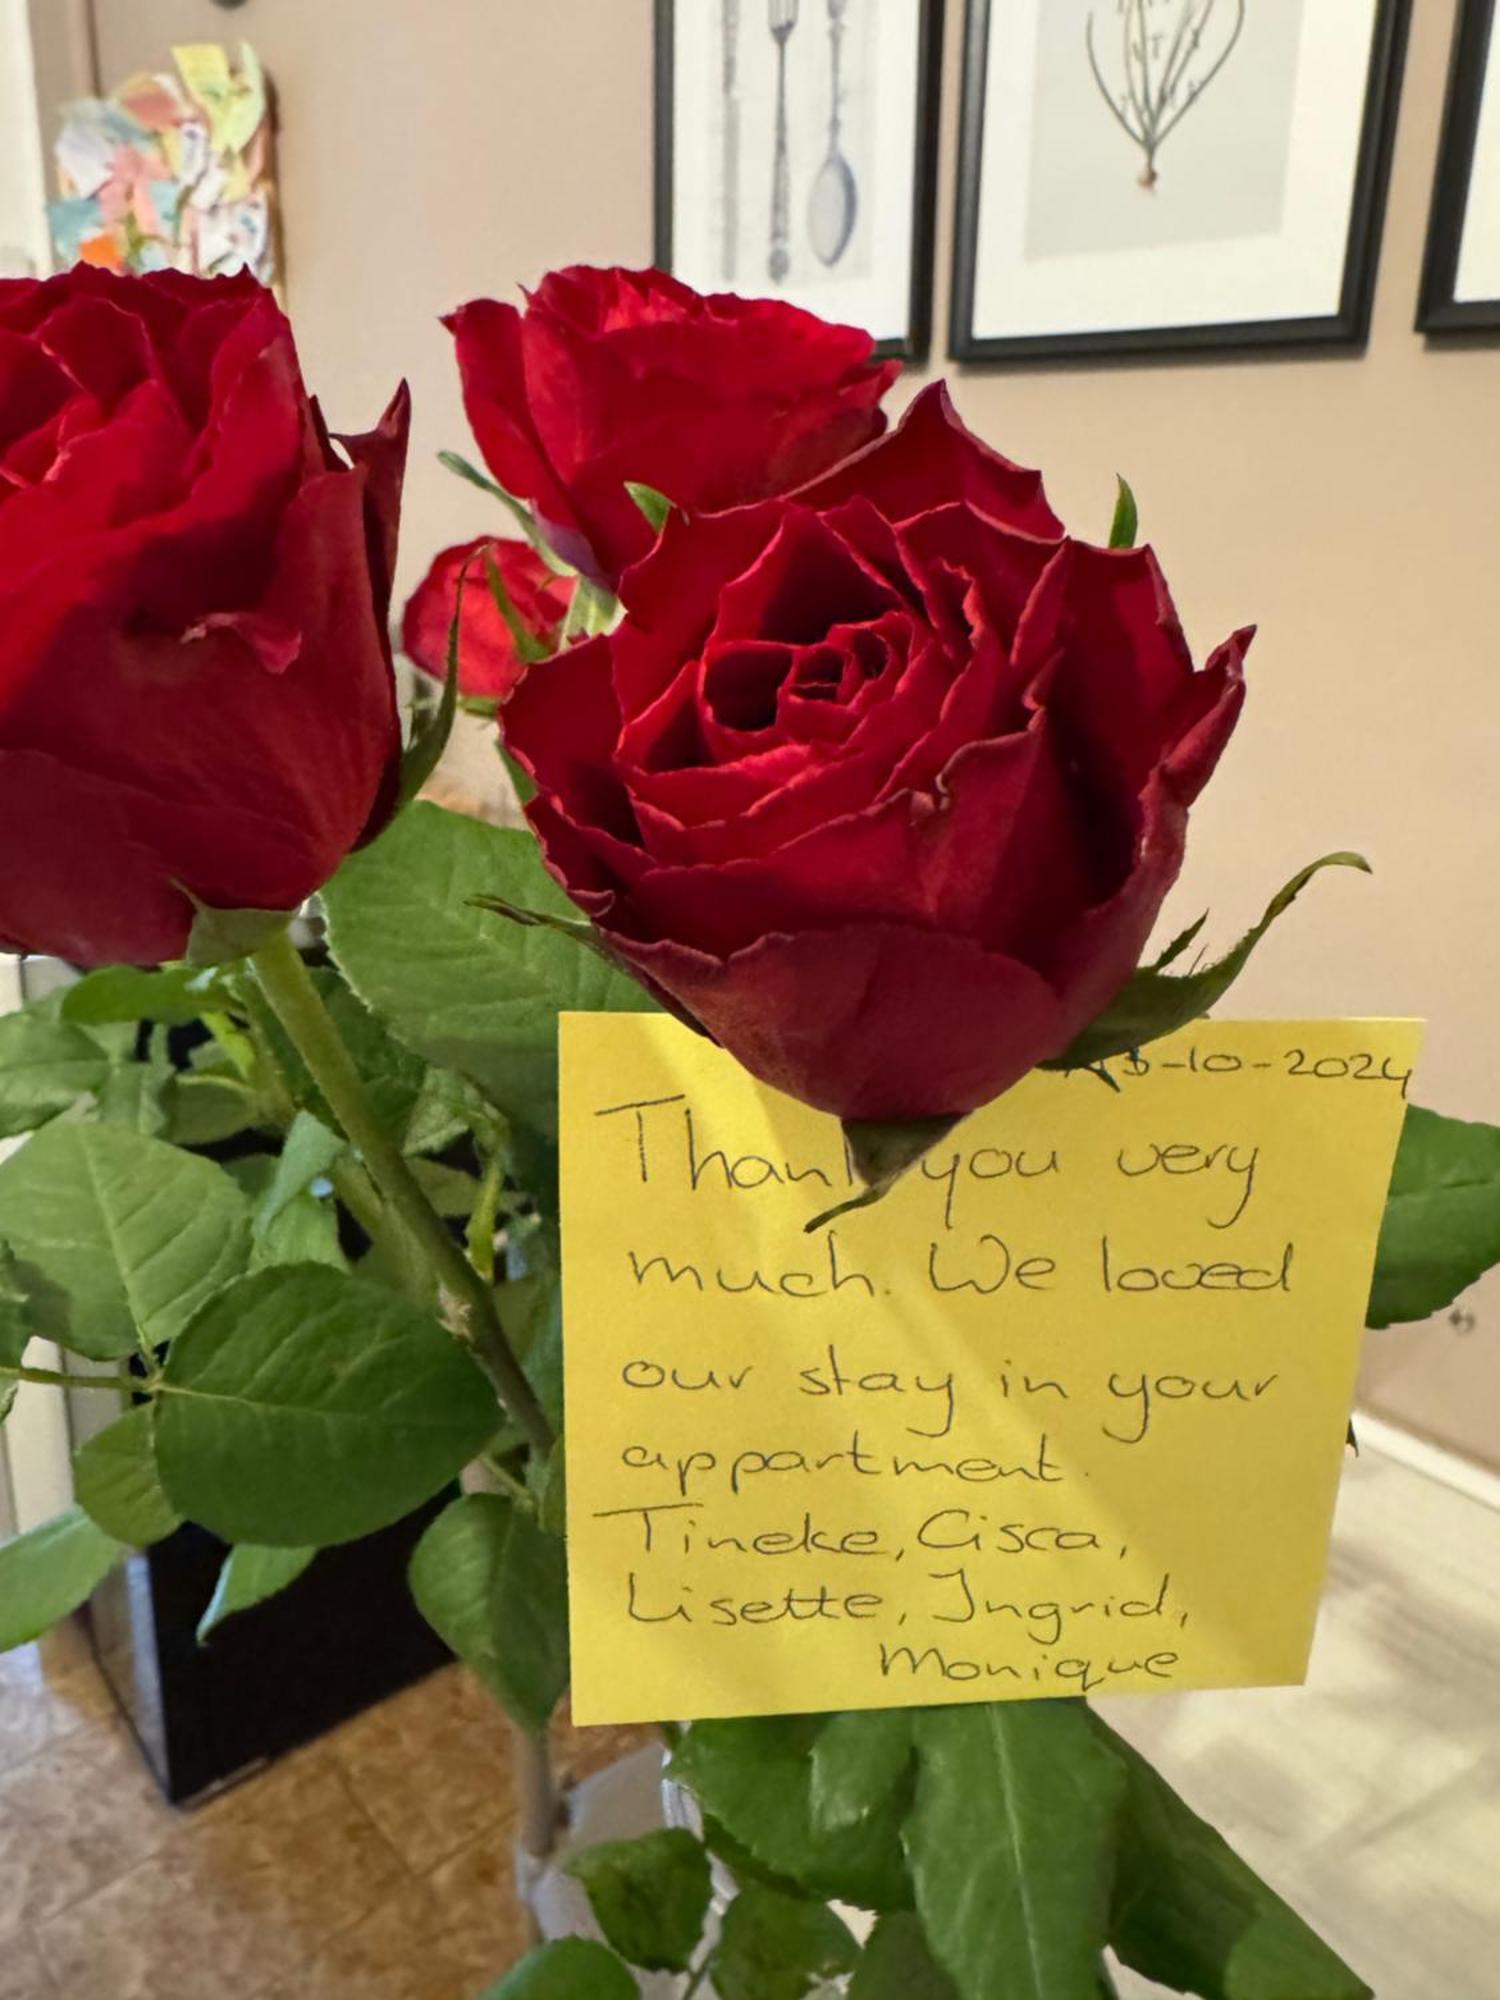 13-10-2024
Thank you very
much. We loved
our stay in your
appartment.
Tineke, Cisca,
Lisette, Ingrid,
Monique